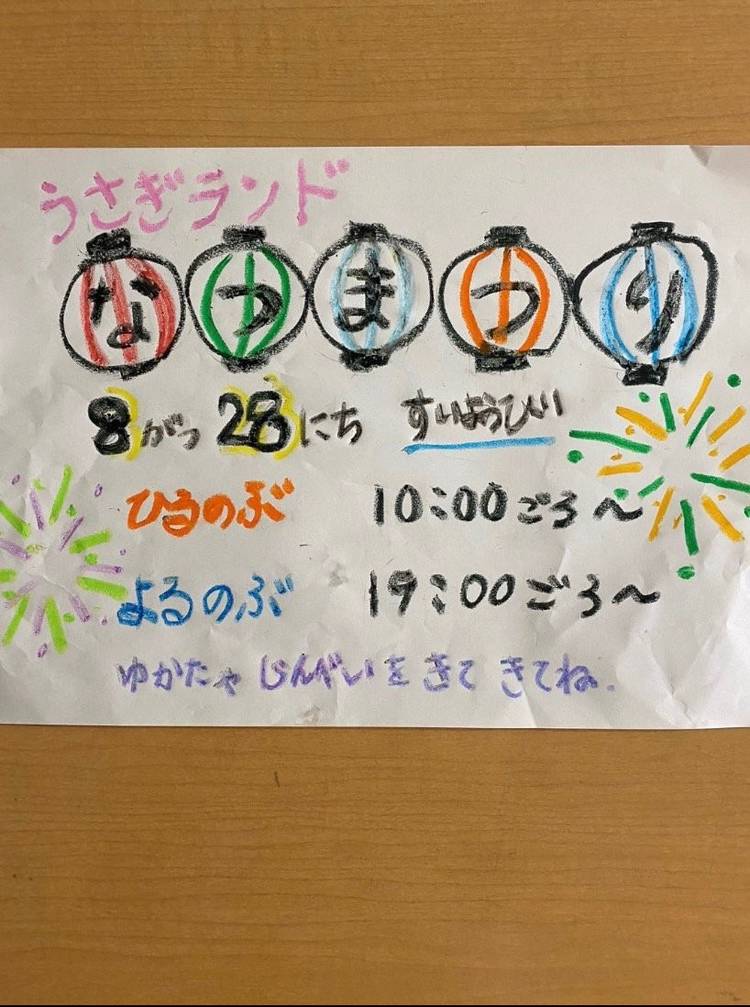 うさぎランド
なつまつり
8がつ28にち すいようびい
ひるのぶ 10:00ごろ〜
よるのぶ 19:00ごろ〜
ゆかたや じんべいを きて きてね.